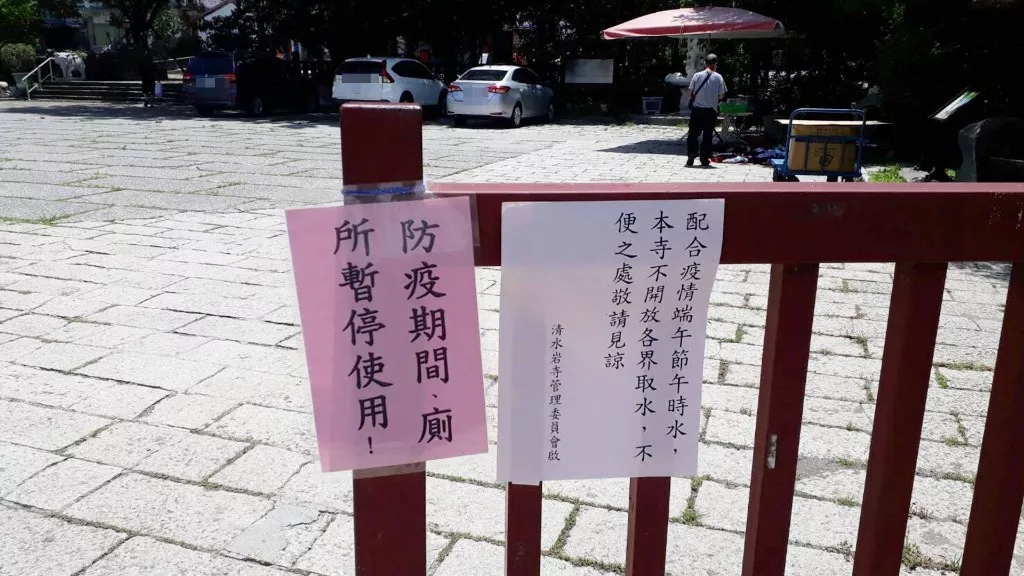 防疫期間、廁
所暫停使用！
配合疫情端午節午時水，
本寺不開放各界取水，不
便之處敬請見諒
清水岩寺管理委員會啟